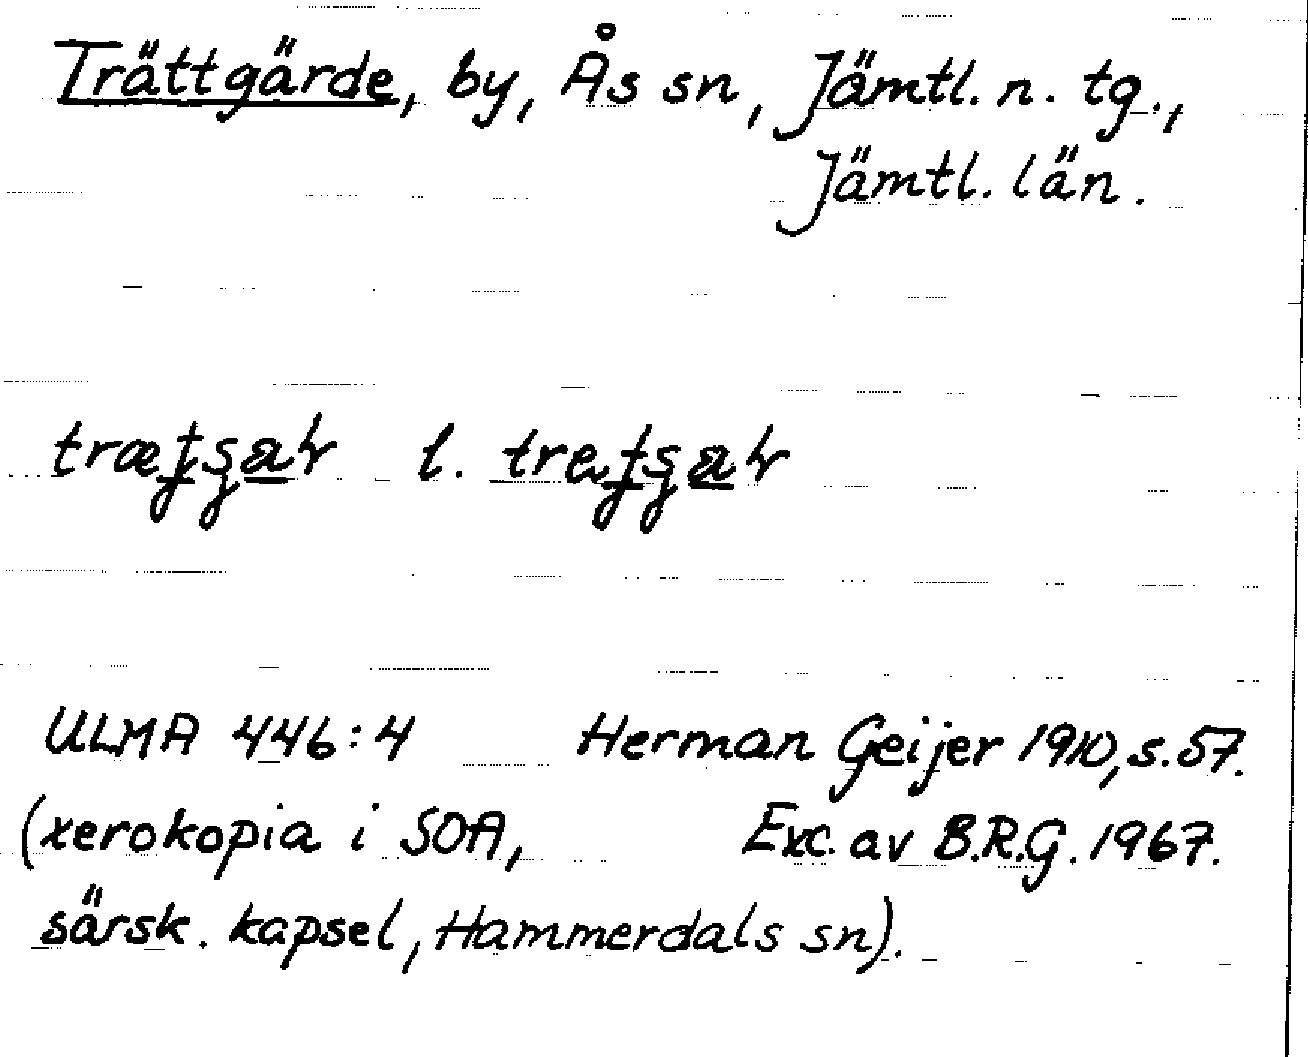 Trättgärde, by, Ås sn, Jämtl. n. tg.,
Jämtl. län.
l.
ULMA 446:4 Herman Geijer 1910, s. 57.
(xerokopia i SOA, Exc. av B.R.G. 1967.
särsk. kapsel, Hammerdals sn).